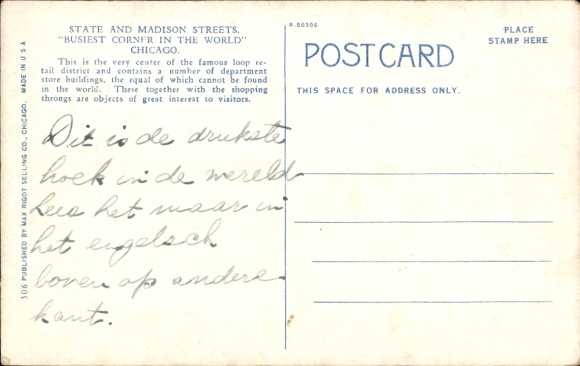 STATE AND MADISON STREETS,
"BUSIEST CORNER IN THE WORLD"
CHICAGO.
This is the very center of the famous loop re-
tail district and contains a number of department
store buildings, the equal of which cannot be found
in the world. These together with the shopping
throngs are objects of great interest to visitors.
Dit is de drukste
hoek in de wereld
lees het maar in
het engelsch
boven op andere
kant.
106 PUBLISHED BY MAX RIGOT SELLING CO., CHICAGO. MADE IN U S A
R-50306
POST CARD
THIS SPACE FOR ADDRESS ONLY.
PLACE
STAMP HERE